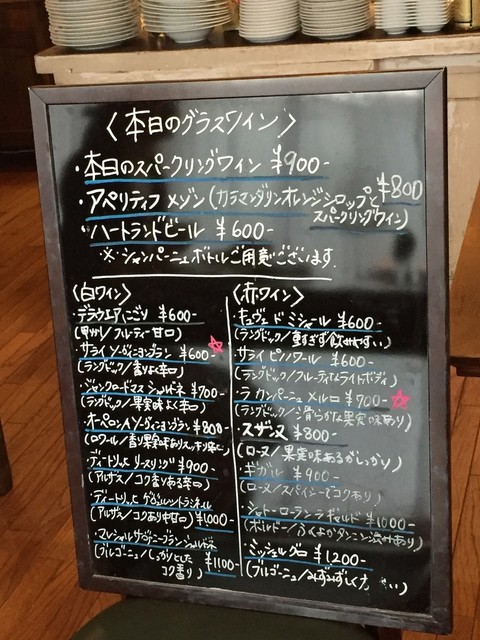 〈本日のグラスワイン〉
・本日のスパークリングワイン ¥900-
・アペリティフ メゾン(カラマンダリンオレンジシロップと
スパークリングワイン) ¥800
ハートランドビール ¥600-
※シャンパーニュボトルご用意ございます
〈白ワイン〉
・デラウエアにごり ¥600-
(甲州/フルーティー甘口)
・サライ ソーヴィニヨンブラン ¥600-
(ラングドック/香りよく辛口)
・ジャンクロードマス シャルドネ ¥700-
(ラングドック/果実味よく辛口)
・オーペロンAソーヴィニヨンブラン ¥800-
(ロワール/香り果実味ありスッキリ辛口)
・ディートリッヒ リースリング ¥900-
(アルザス/コク香りある辛口)
・ディートリッヒ ゲヴェルツトラミネール
(アルザス/コクあり中甘口) ¥1000-
・マレシャル
(ブルゴーニュ/しっかりとした
コク香り) ¥1100-
〈赤ワイン〉
・キュヴェ ド ミシェール ¥600-
(ラングドック/重すぎず飲みやすい)
・サライ ピノワール ¥600-
(ラングドック/フルーティ&ライトボディ)
・ラ カンパーニュ メルロ ¥700-
(ラングドック/滑らかな果実味あり)
・スザーヌ ¥800-
(ローヌ/果実味あるがしっかり)
・ギガル ¥900-
(ローヌ/スパイシーでコクあり)
・シャトーローラン ラギャルド ¥1000-
(ボルドー/ふくよかタンニン渋みあり)
・ミッシェルグロ ¥1200-
(ブルゴーニュ/みずみずしく